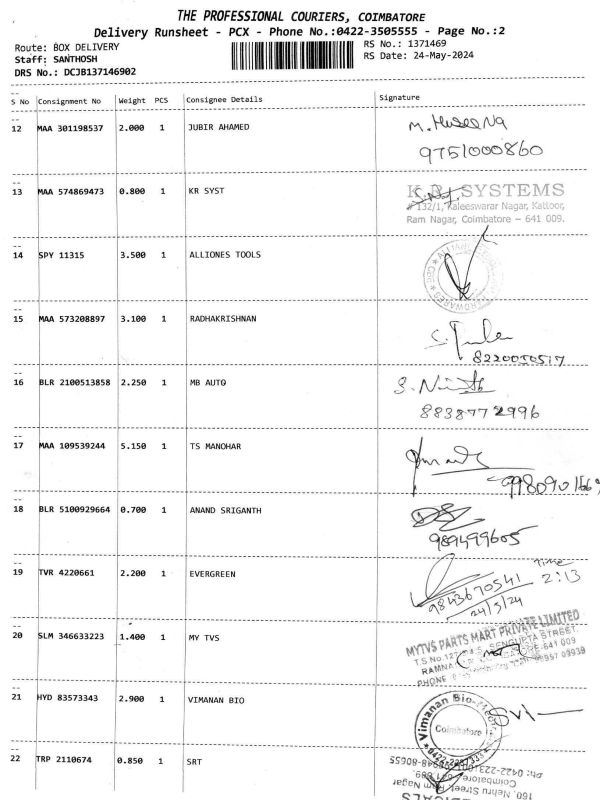 THE PROFESSIONAL COURIERS, COIMBATORE
Delivery Runsheet - PCX - Phone No.:0422-3505555 - Page No.:2
Route: BOX DELIVERY
RS No.: 1371469
Staff: SANTHOSH
RS Date: 24-May-2024
DRS No.: DCJB137146902
S No Consignment No Weight PCS Consignee Details Signature
12 MAA 301198537 2.000 1 JUBIR AHAMED
9751000860
13 MAA 574869473 0.800 1 KR SYST
K.R. SYSTEMS
# 132/1, Kaleeswarar Nagar, Kattoor,
Ram Nagar, Coimbatore – 641 009.
14 SPY 11315 3.500 1 ALLIONES TOOLS
15 MAA 573208897 3.100 1 RADHAKRISHNAN
16 BLR 2100513858 2.250 1 MB AUTO
8838772996
17 MAA 109539244 5.150 1 TS MANOHAR
18 BLR 5100929664 0.700 1 ANAND SRIGANTH
989499605
19 TVR 4220661 2.200 1 EVERGREEN
Time 2:13
9843670541
24/5/24
20 SLM 346633223 1.400 1 MY TVS
MYTVS PARTS MART PRIVATE LIMITED
SENGUPTA STREET,
PHONE
21 HYD 83573343 2.900 1 VIMANAN BIO
Vimanan Bio-
Coimbatore
22 TRP 2110674 0.850 1 SRT
160, Nehru Street, Ram Nagar